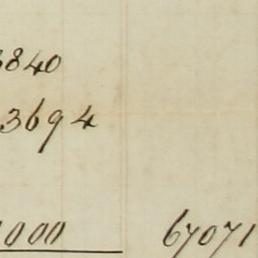 3840
3694
1000 67071